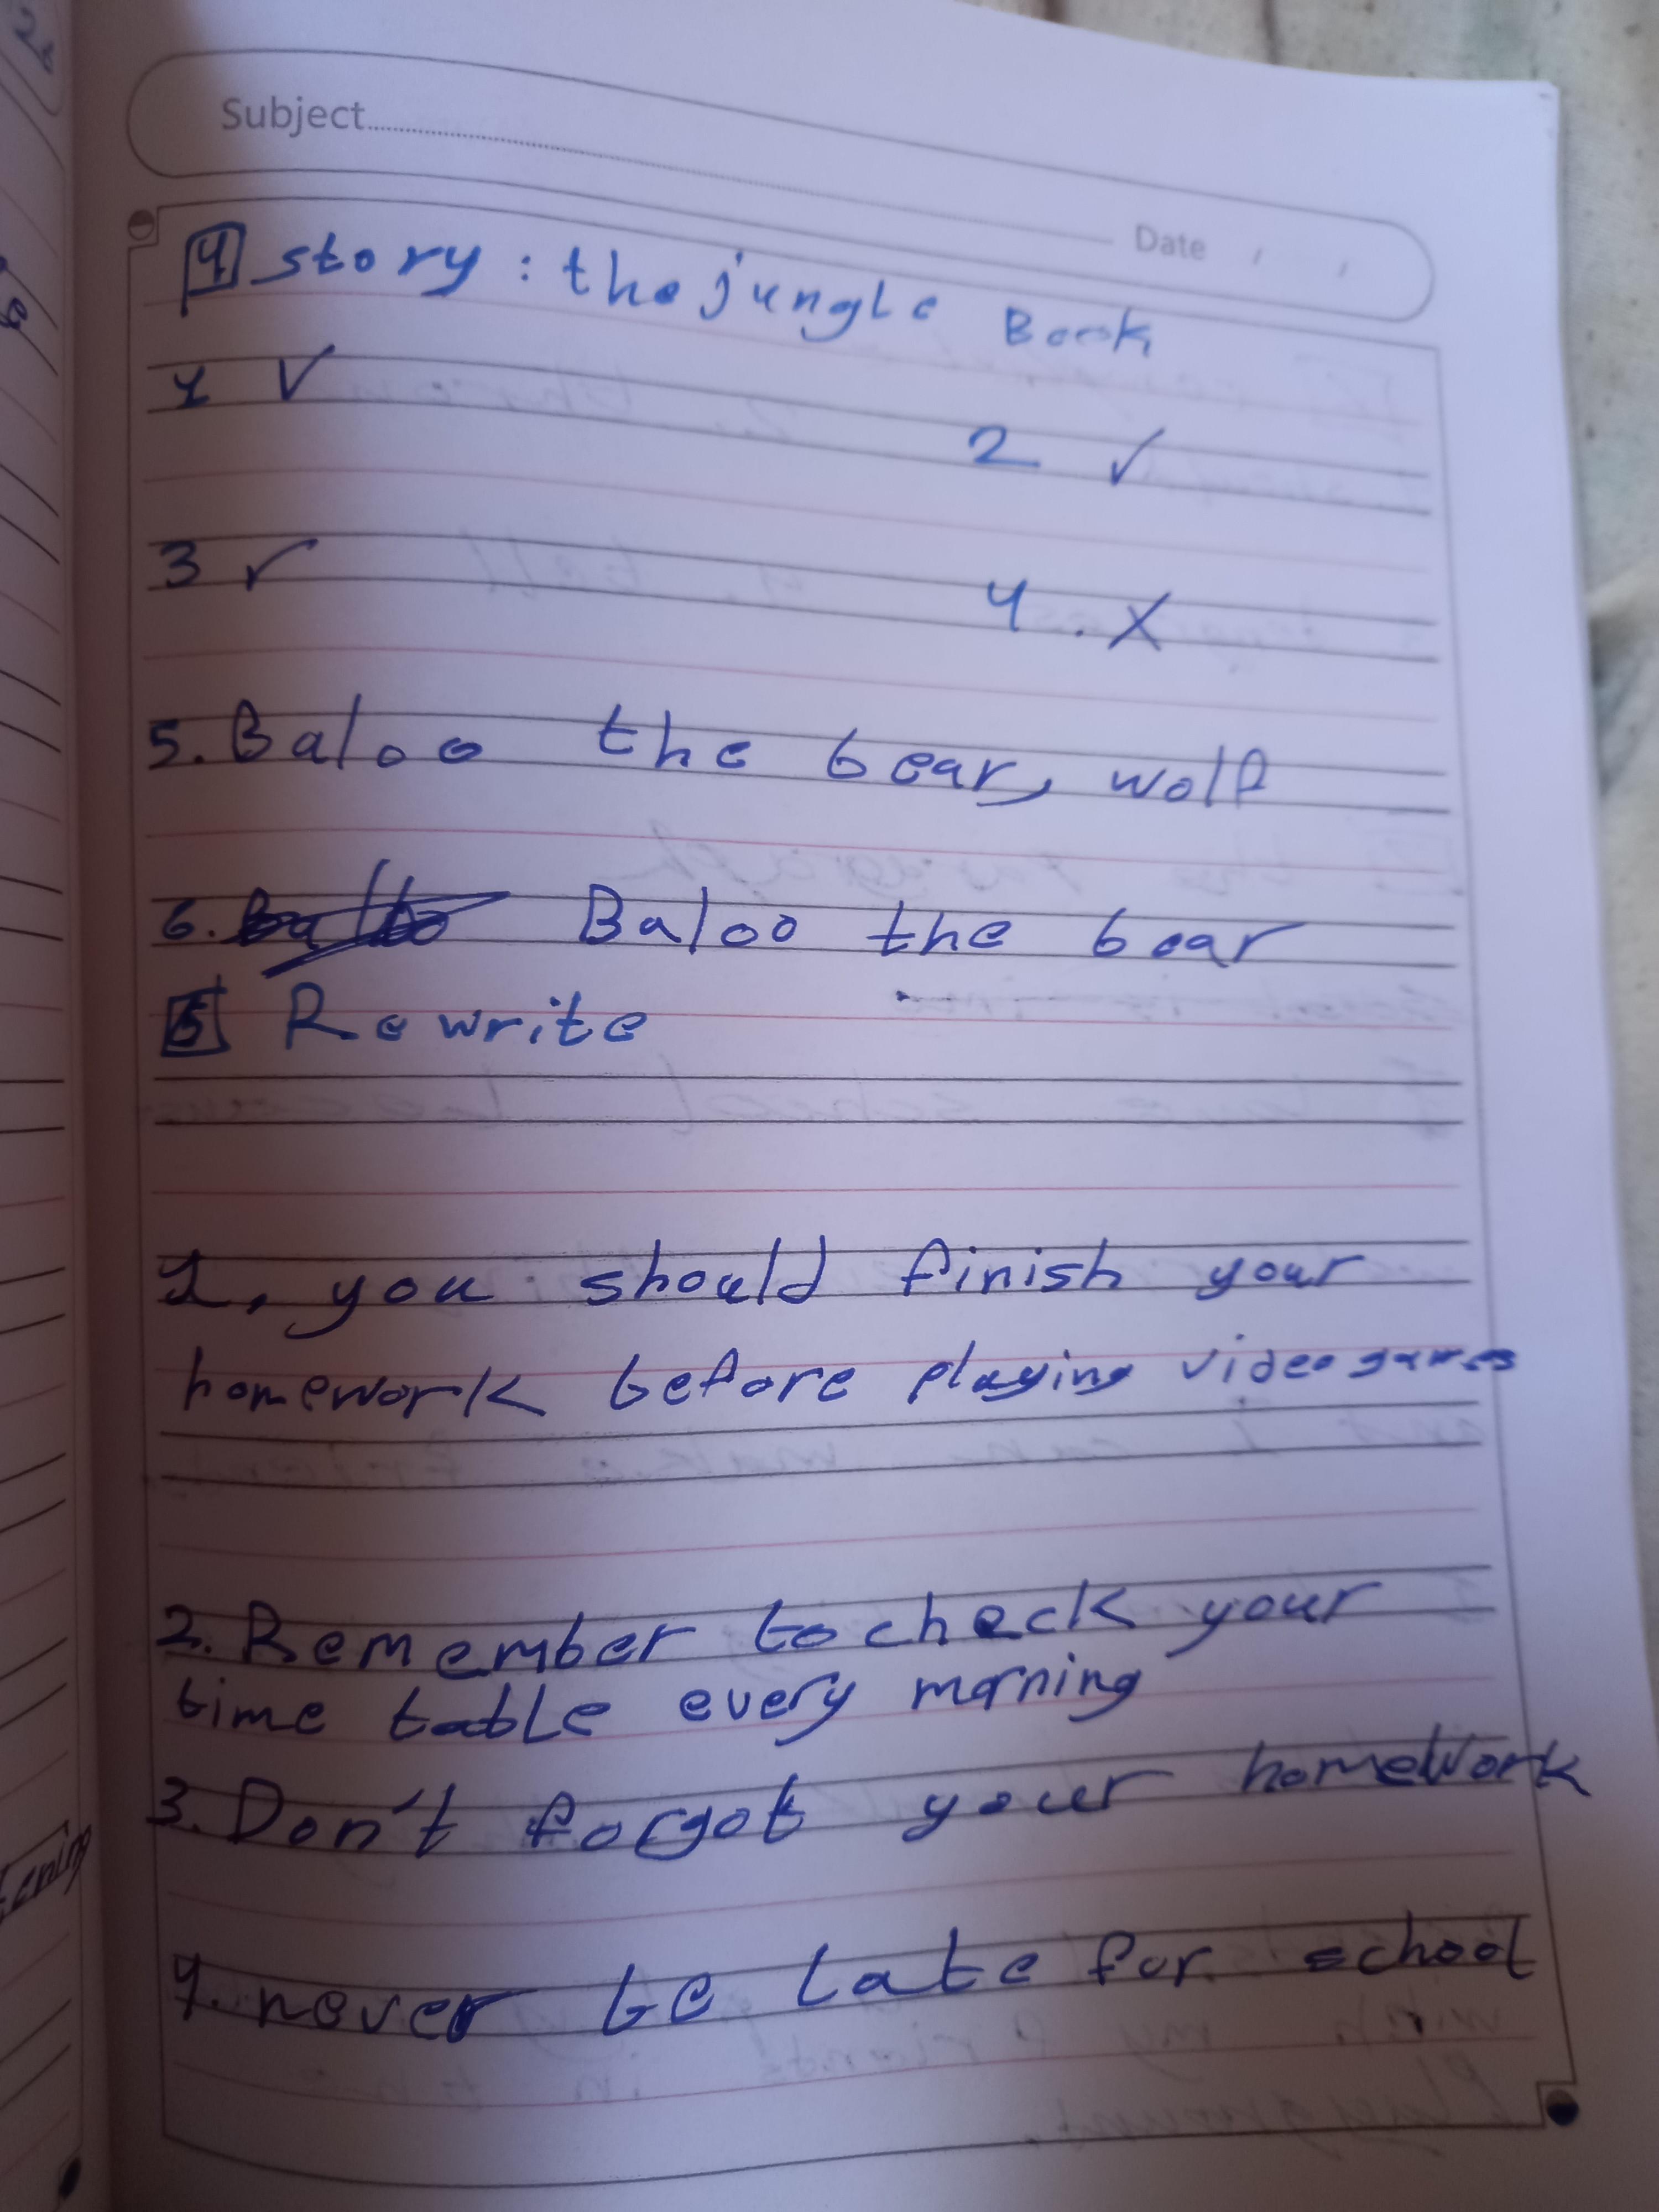 Subject
Date / /
4 story : the jungle Book
1 ✓
2 ✓
3 ✓
4 . X
5. Baloo the bear, wolf
6. Baloo the bear
5 Rewrite
1. you should finish your
homework before playing video games
2. Remember to check your
time table every morning
3. Don't forgot your homework
4. never be late for school